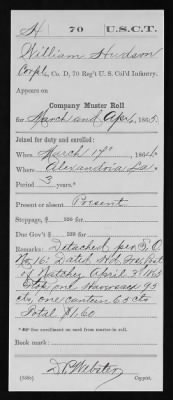 H 70 U.S.C.T.
William Hudson
Corpl, Co. D, 70 Reg't U. S. Col'd Infantry.
Appears on
Company Muster Roll
for March and Apr, 1865.
Joined for duty and enrolled:
When March 17", 1864
Where Alexandria La
Period 3 years.*
Present or absent Present
Stoppage, $ 100 for
Due Gov't $ 100 for
Remarks: Detached per S.O.
No. 16; Dated Hd. Qrs. Post
of Natchez April 3" 1865
Stop one Haversack 95
cts, one canteen 65 cts
Total $1.60
Book mark:
D C Webster
Copyist.